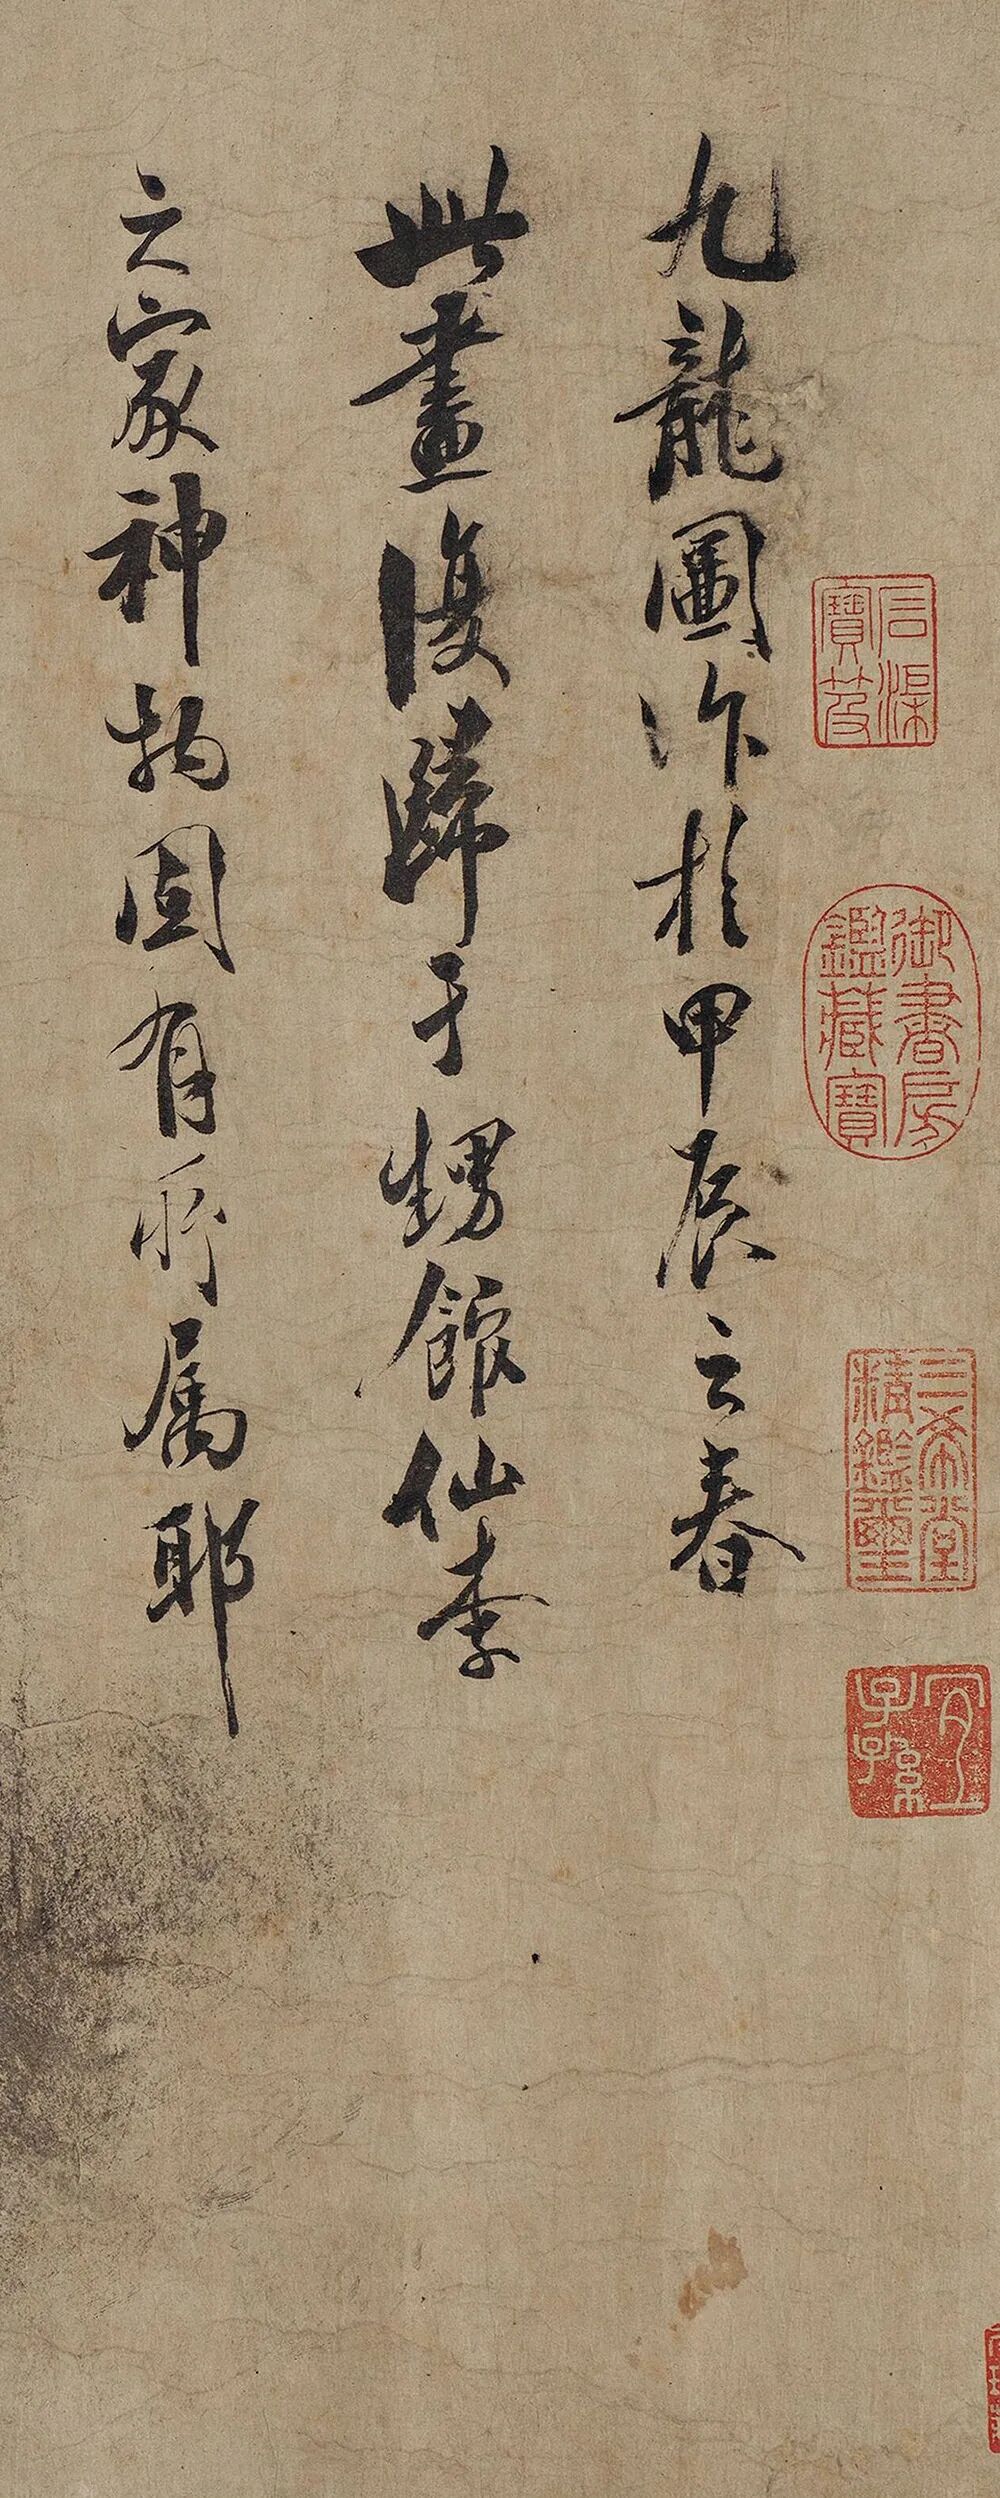 九龍圖作於甲辰之春
此畫復歸于甥館仙李
之家神物固有所屬耶
石渠寶笈
御書房鑑藏寶
三希堂精鑑璽
宜子孫